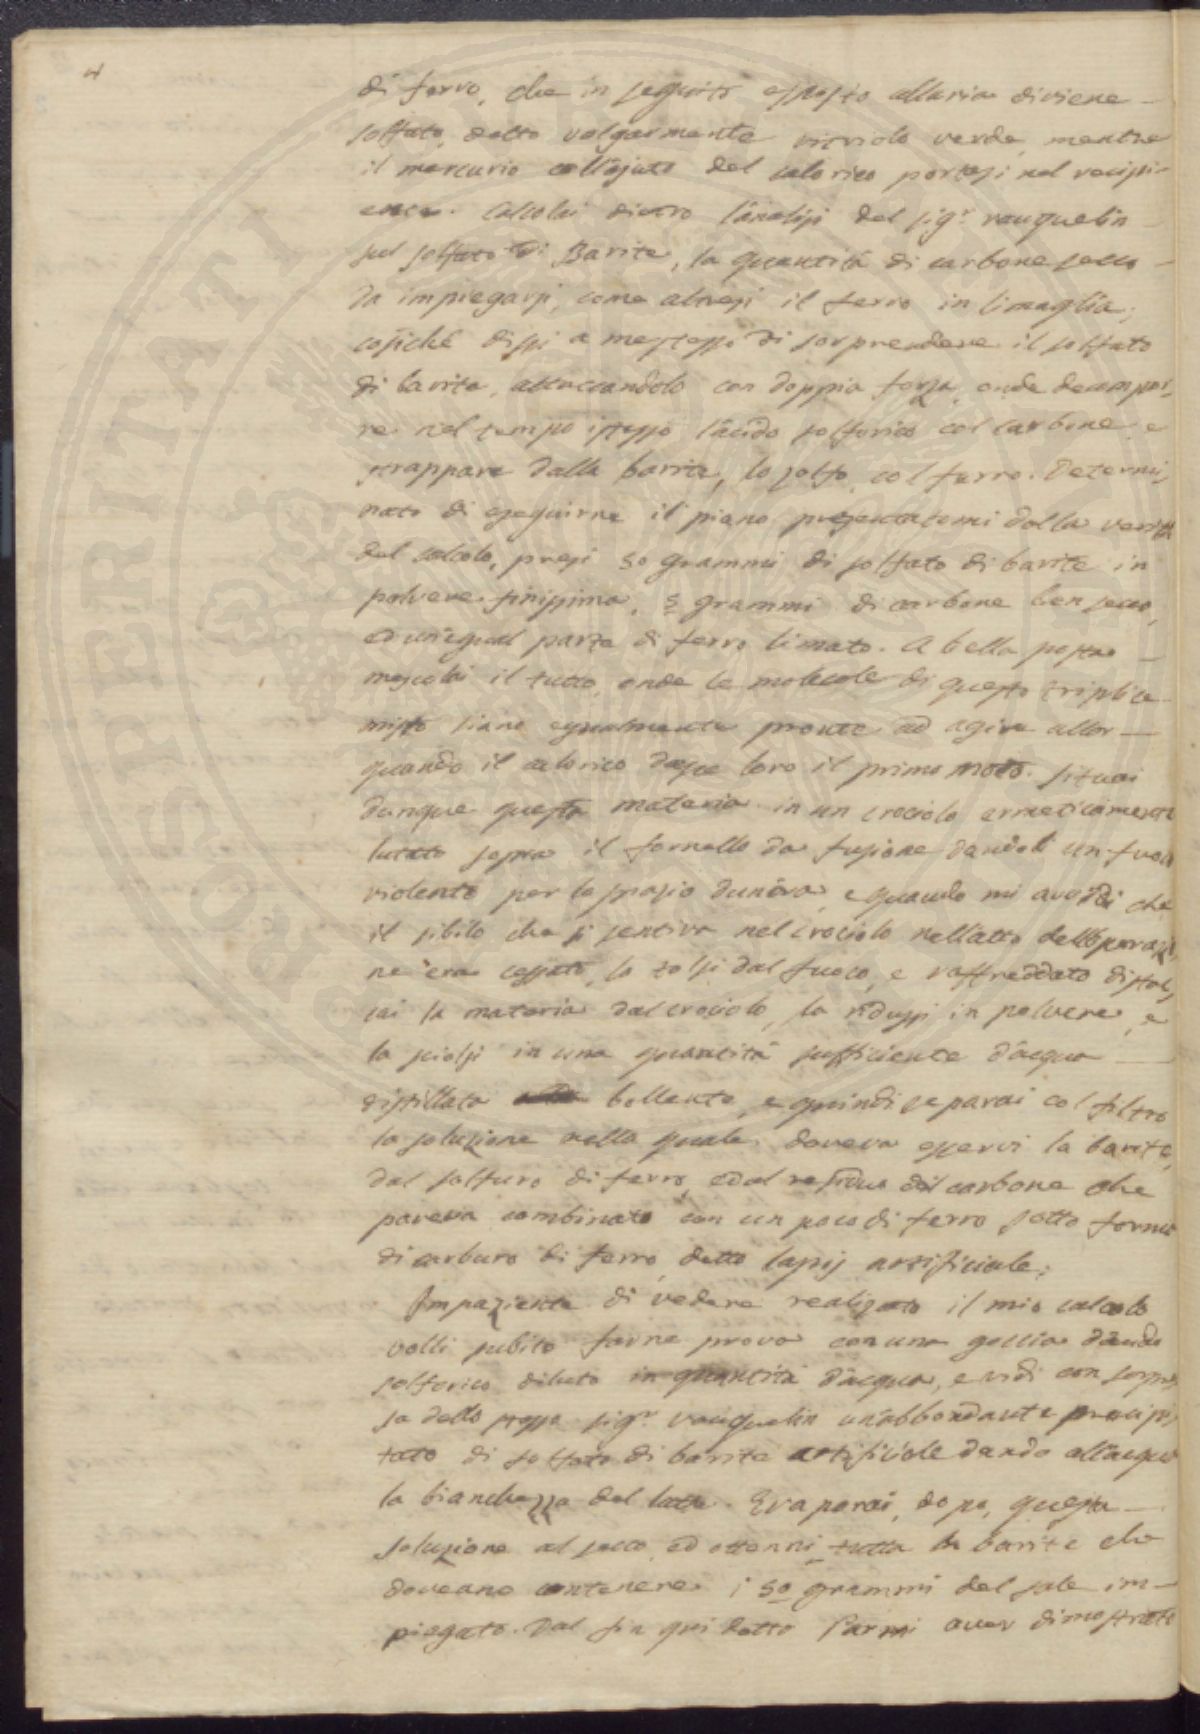 4
di ferro, che in seguito esposto all'aria diviene
solfato, detto volgarmente vitriolo verde, mentre
il mercurio coll'ajuto del calorico portasi nel recipi-
ente. Calcolai dietro l'analisi del sigr. vauquelin
sul solfato di Barite, la quantità di carbone secco
da impiegarsi, come altresi il ferro in limaglia;
cosiché dissi a me stesso di sorprendere il solfato
di barite, attaccandolo con doppia forza, onde decompor-
re nel tempo istesso l'acido solforico col carbone e
strappare dalla barite, lo zolfo, col ferro. Determi-
nato di eseguirne il piano presentatomi dalla verità
del calcolo, presi 50 grammi di solfato di barite in
polvere finissima, 5 grammi di carbone ben secco,
ed un'egual parte di ferro limato. A bella posta
mescolai il tutto, onde le molecole di questo triplice
misto siano egualmente pronte ad agire allor-
quando il calorico dasse loro il primo moto. Situai
dunque questa materia in un crociolo ermeticamente
lutato sopra il fornello da fusione dandoli un fuoco
violento per lo spazio dun'ora, e quando mi avvidi che
il sibilo che si sentiva nel crociolo nell'atto dell'operazio
ne era cessato, lo tolsi dal fuoco, e raffreddato distac-
cai la materia dal crociolo, la ridussi in polvere, e
la sciolsi in una quantità sufficiente d'acqua
distillata bollente, e quindi separai col filtro
la soluzione nella quale doveva esservi la barite,
dal solfuro di ferro, ed al residuo del carbone che
pareva combinato con un poco di ferro sotto forma
di carburo di ferro, detto lapis artificiale.
Impaziente di vedere realizato il mio calcolo
volli subito farne prova con una goccia d'acido
solforico diluto in quantità d'acqua, e vidi con sorpre-
sa dello stesso sigr. vauquelin un'abbondante precipi-
tato di solfato di barite artificiale dando all'acqua
la bianchezza del latte. Evaporai, dopo, questa
soluzione al secco, ed ottenni tutta la barite che
doveano contenere i 50 grammi del sale im-
piegato. Dal fin qui detto Parmi aver dimostrato